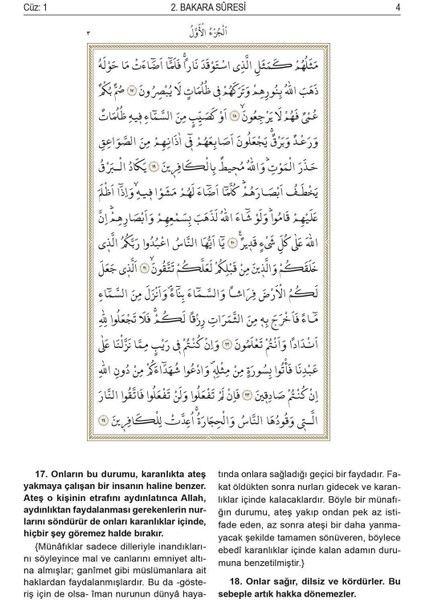 Cüz: 1
2. BAKARA SÛRESİ
4
اَلْجُزْءُ الْاَوَّلُ
٣
مَثَلُهُمْ كَمَثَلِ الَّذِي اسْتَوْقَدَ نَاراًۚ فَلَمَّٓا اَضَٓاءَتْ مَا حَوْلَهُ
ذَهَبَ اللّٰهُ بِنُورِهِمْ وَتَرَكَهُمْ فٖي ظُلُمَاتٍ لَا يُبْصِرُونَ ﴿١٧﴾ صُمٌّ بُكْمٌ
عُمْيٌ فَهُمْ لَا يَرْجِعُونَۙ ﴿١٨﴾ اَوْ كَصَيِّبٍ مِنَ السَّمَٓاءِ فٖيهِ ظُلُمَاتٌ
وَرَعْدٌ وَبَرْقٌۚ يَجْعَلُونَ اَصَابِعَهُمْ فٖٓي اٰذَانِهِمْ مِنَ الصَّوَاعِقِ
حَذَرَ الْمَوْتِؕ وَاللّٰهُ مُحٖيطٌ بِالْكَافِرٖينَ ﴿١٩﴾ يَكَادُ الْبَرْقُ
يَخْطَفُ اَبْصَارَهُمْؕ كُلَّمَٓا اَضَٓاءَ لَهُمْ مَشَوْا فٖيهِۙ وَاِذَٓا اَظْلَمَ
عَلَيْهِمْ قَامُواؕ وَلَوْ شَٓاءَ اللّٰهُ لَذَهَبَ بِسَمْعِهِمْ وَاَبْصَارِهِمْؕ اِنَّ
اللّٰهَ عَلٰى كُلِّ شَيْءٍ قَدٖيرٌ ﴿٢٠﴾ يَٓا اَيُّهَا النَّاسُ اعْبُدُوا رَبَّكُمُ الَّذٖي
خَلَقَكُمْ وَالَّذٖينَ مِنْ قَبْلِكُمْ لَعَلَّكُمْ تَتَّقُونَۙ ﴿٢١﴾ اَلَّذٖي جَعَلَ
لَكُمُ الْاَرْضَ فِرَاشاً وَالسَّمَٓاءَ بِنَٓاءًࣕ وَاَنْزَلَ مِنَ السَّمَٓاءِ
مَٓاءً فَاَخْرَجَ بِهٖ مِنَ الثَّمَرَاتِ رِزْقاً لَكُمْۚ فَلَا تَجْعَلُوا لِلّٰهِ
اَنْدَاداً وَاَنْتُمْ تَعْلَمُونَ ﴿٢٢﴾ وَاِنْ كُنْتُمْ فٖي رَيْبٍ مِمَّا نَزَّلْنَا عَلٰى
عَبْدِنَا فَأْتُوا بِسُورَةٍ مِنْ مِثْلِهٖࣕ وَادْعُوا شُهَدَٓاءَكُمْ مِنْ دُونِ اللّٰهِ
اِنْ كُنْتُمْ صَادِقٖينَ ﴿٢٣﴾ فَاِنْ لَمْ تَفْعَلُوا وَلَنْ تَفْعَلُوا فَاتَّقُوا النَّارَ
الَّتٖي وَقُودُهَا النَّاسُ وَالْحِجَارَةُۚ اُعِدَّتْ لِلْكَافِرٖينَ ﴿٢٤﴾
17. Onların bu durumu, karanlıkta ateş
yakmaya çalışan bir insanın haline benzer.
Ateş o kişinin etrafını aydınlatınca Allah,
aydınlıktan faydalanması gerekenlerin nur-
larını söndürür de onları karanlıklar içinde,
hiçbir şey göremez halde bırakır.
{Münâfıklar sadece dilleriyle inandıkları-
nı söyleyince mal ve canlarını emniyet altı-
na almışlar; ganimet gibi müslümanlara ait
haklardan faydalanmışlardır. Bu da -göste-
riş için de olsa- iman nurunun dünyâ haya-
tında onlara sağladığı geçici bir faydadır. Fa-
kat öldükten sonra nurları gidecek ve karan-
lıklar içinde kalacaklardır. Böyle bir münafı-
ğın durumu, ateş yakıp ondan pek az isti-
fade eden, az sonra ateşi bir daha yanma-
yacak şekilde tamamen sönüveren, böylece
ebedî karanlıklar içinde kalan adamın duru-
muna benzetilmiştir.}
18. Onlar sağır, dilsiz ve kördürler. Bu
sebeple artık hakka dönemezler.